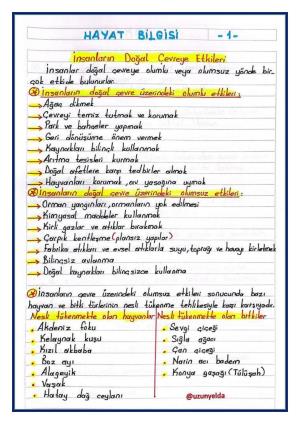 HAYAT BİLGİSİ -1-
İnsanların Doğal Çevreye Etkileri
İnsanlar doğal çevreye olumlu veya olumsuz yönde bir-
çok etkide bulunurlar.
İnsanların doğal çevre üzerindeki olumlu etkileri:
Ağaç dikmek
Çevreyi temiz tutmak ve korumak
Park ve bahçeler yapmak
Geri dönüşüme önem vermek
Kaynakları bilinçli kullanmak
Arıtma tesisleri kurmak
Doğal afetlere karşı tedbirler almak
Hayvanları korumak, avı yasağına uymak
İnsanların doğal çevre üzerindeki olumsuz etkileri:
Orman yangınları, ormanların yok edilmesi
Kimyasal maddeler kullanmak
Kirli gazlar ve atıklar bırakmak
Çarpık kentleşme (plansız yapılar)
Fabrika atıkları ve evsel atıklarla suyu, toprağı ve havayı kirletmek
Bilinçsiz avlanma
Doğal kaynakları bilinçsizce kullanma
İnsanların çevre üzerindeki olumsuz etkileri sonucunda bazı
hayvan ve bitki türlerinin nesli tükenme tehlikesiyle karşı karşıyadır.
Nesli tükenmekte olan hayvanlar
Akdeniz foku
Kelaynak kuşu
Kızıl akbaba
Boz ayı
Alageyik
Vaşak
Hatay dağ ceylanı
Nesli tükenmekte olan bitkiler
Sevgi çiçeği
Sığla ağacı
Çan çiçeği
Narin acı badem
Konya gaşağı (Tülüşah)
@uzunyelda